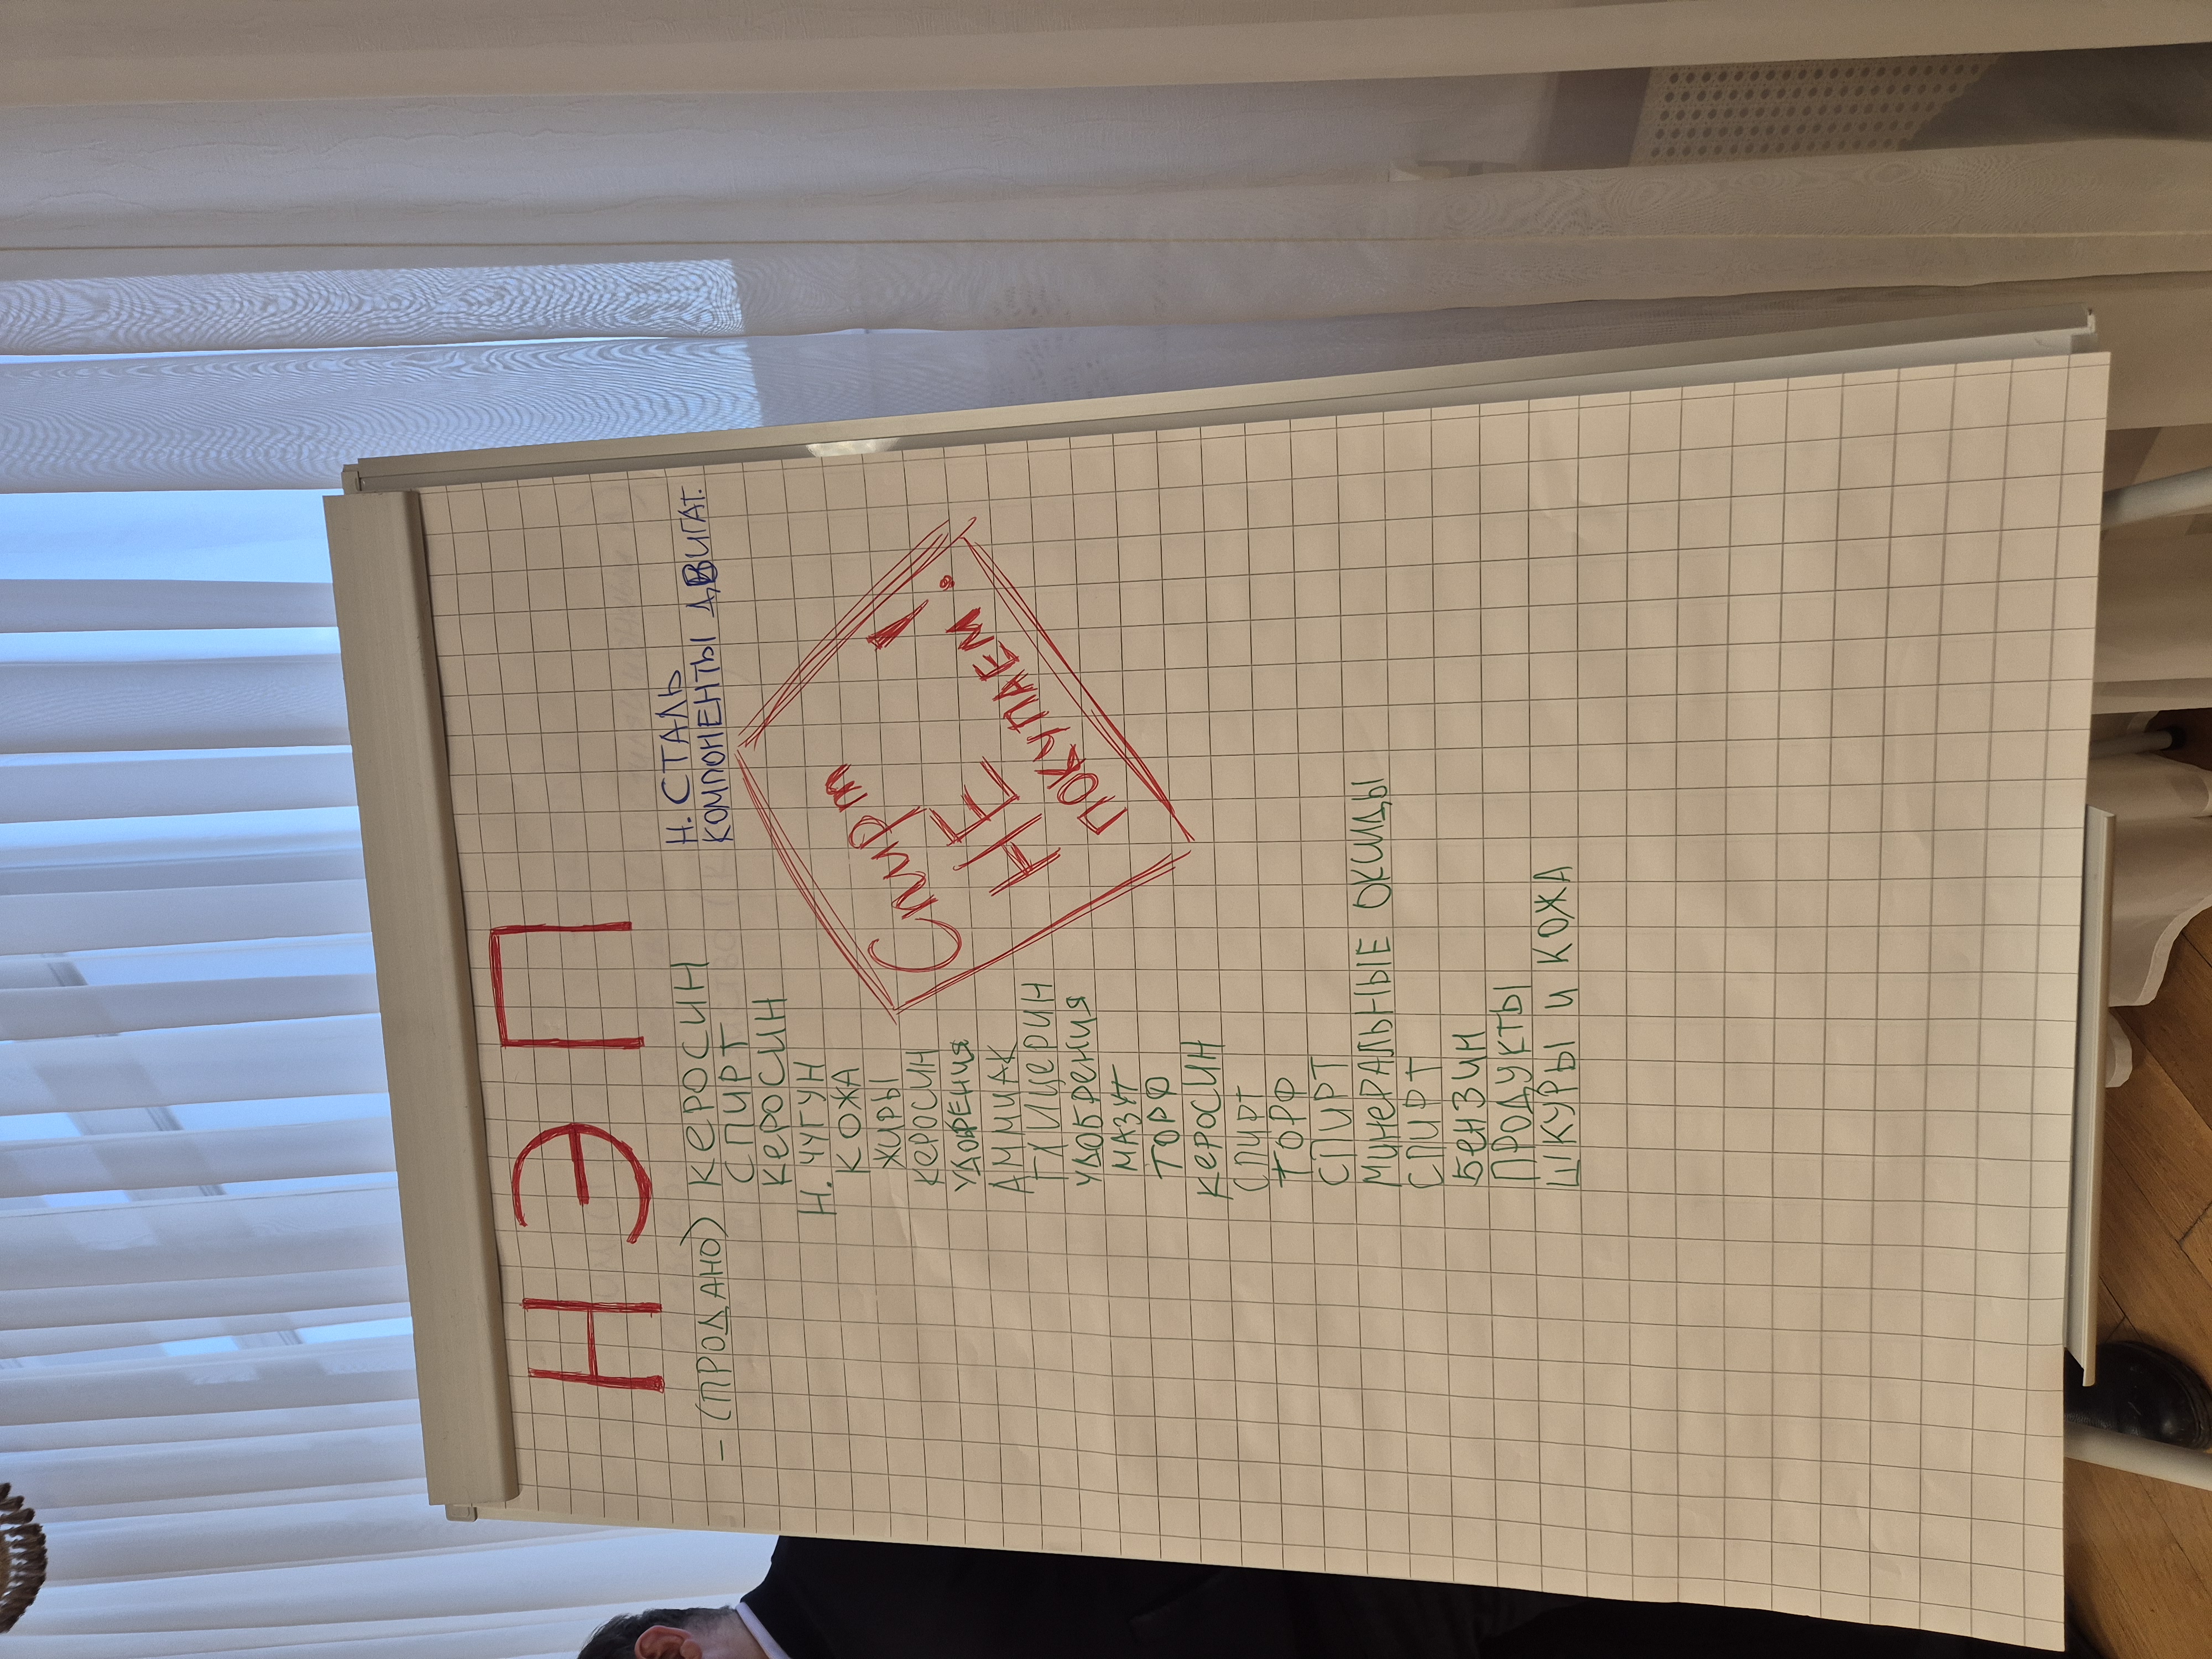 НЭП
– (ПРОДАНО) КЕРОСИН
СПИРТ
КЕРОСИН
Н. ЧУГУН
КОЖА
ЖИРЫ
КЕРОСИН
УДОБРЕНИЯ
АММИАК
ГЛИЦЕРИН
УДОБРЕНИЯ
МАЗУТ
ТОРФ
КЕРОСИН
СПИРТ
ТОРФ
СПИРТ
МИНЕРАЛЬНЫЕ ОКСИДЫ
СПИРТ
БЕНЗИН
ПРОДУКТЫ
ШКУРЫ И КОЖА
Н. СТАЛЬ
КОМПОНЕНТЫ ДВИГАТ.
Спирт
НЕ
ПОКУПАЕМ!